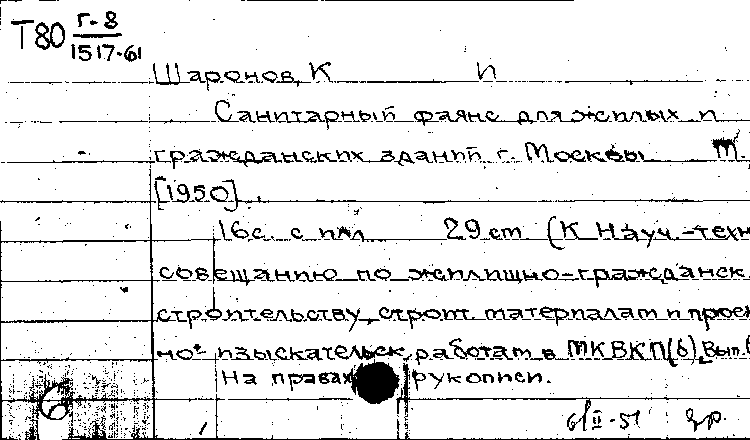 Т80 Г-8
1517-61
Шаронов, К И
Санитарный фаянс для жилых и
гражданских зданий г. Москвы М.
[1950].
16с. с илл 29 см (К Науч.-техн
совещанию по жилищно-гражданск.
строительству, строит. материалам и проек
но- изыскательск. работам в МК ВКП(б) Вып.
На правах рукописи.
6/II-51